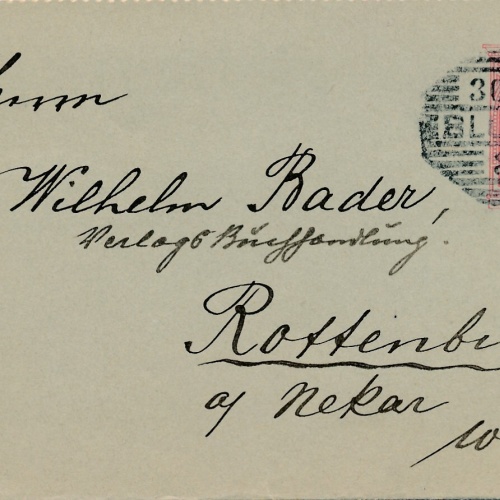 Herrn
Wilhelm Bader,
Verlags Buchhandlung.
Rottenbu
a/ Nekar
30
BL